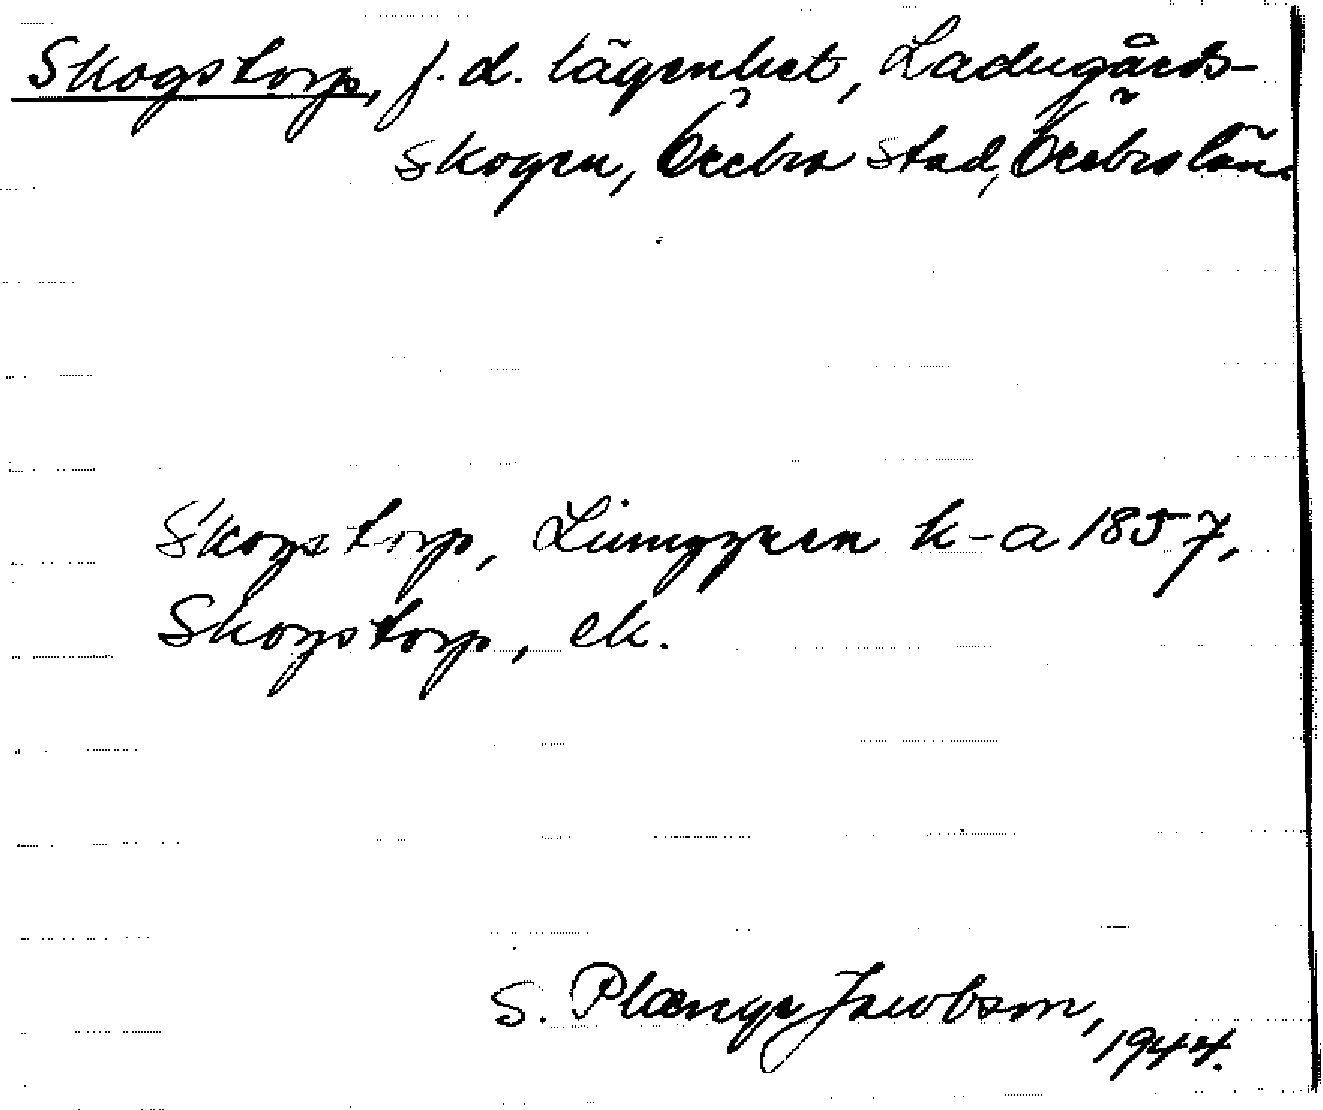 Skogstorp, f.d. lägenhet, Ladugårds-
skogen, Örebro stad, Örebro län.
Skogstorp, Ljunggren k-a 1857,
Skogstorp, ek.
S. Plænge Jacobson,
1944.